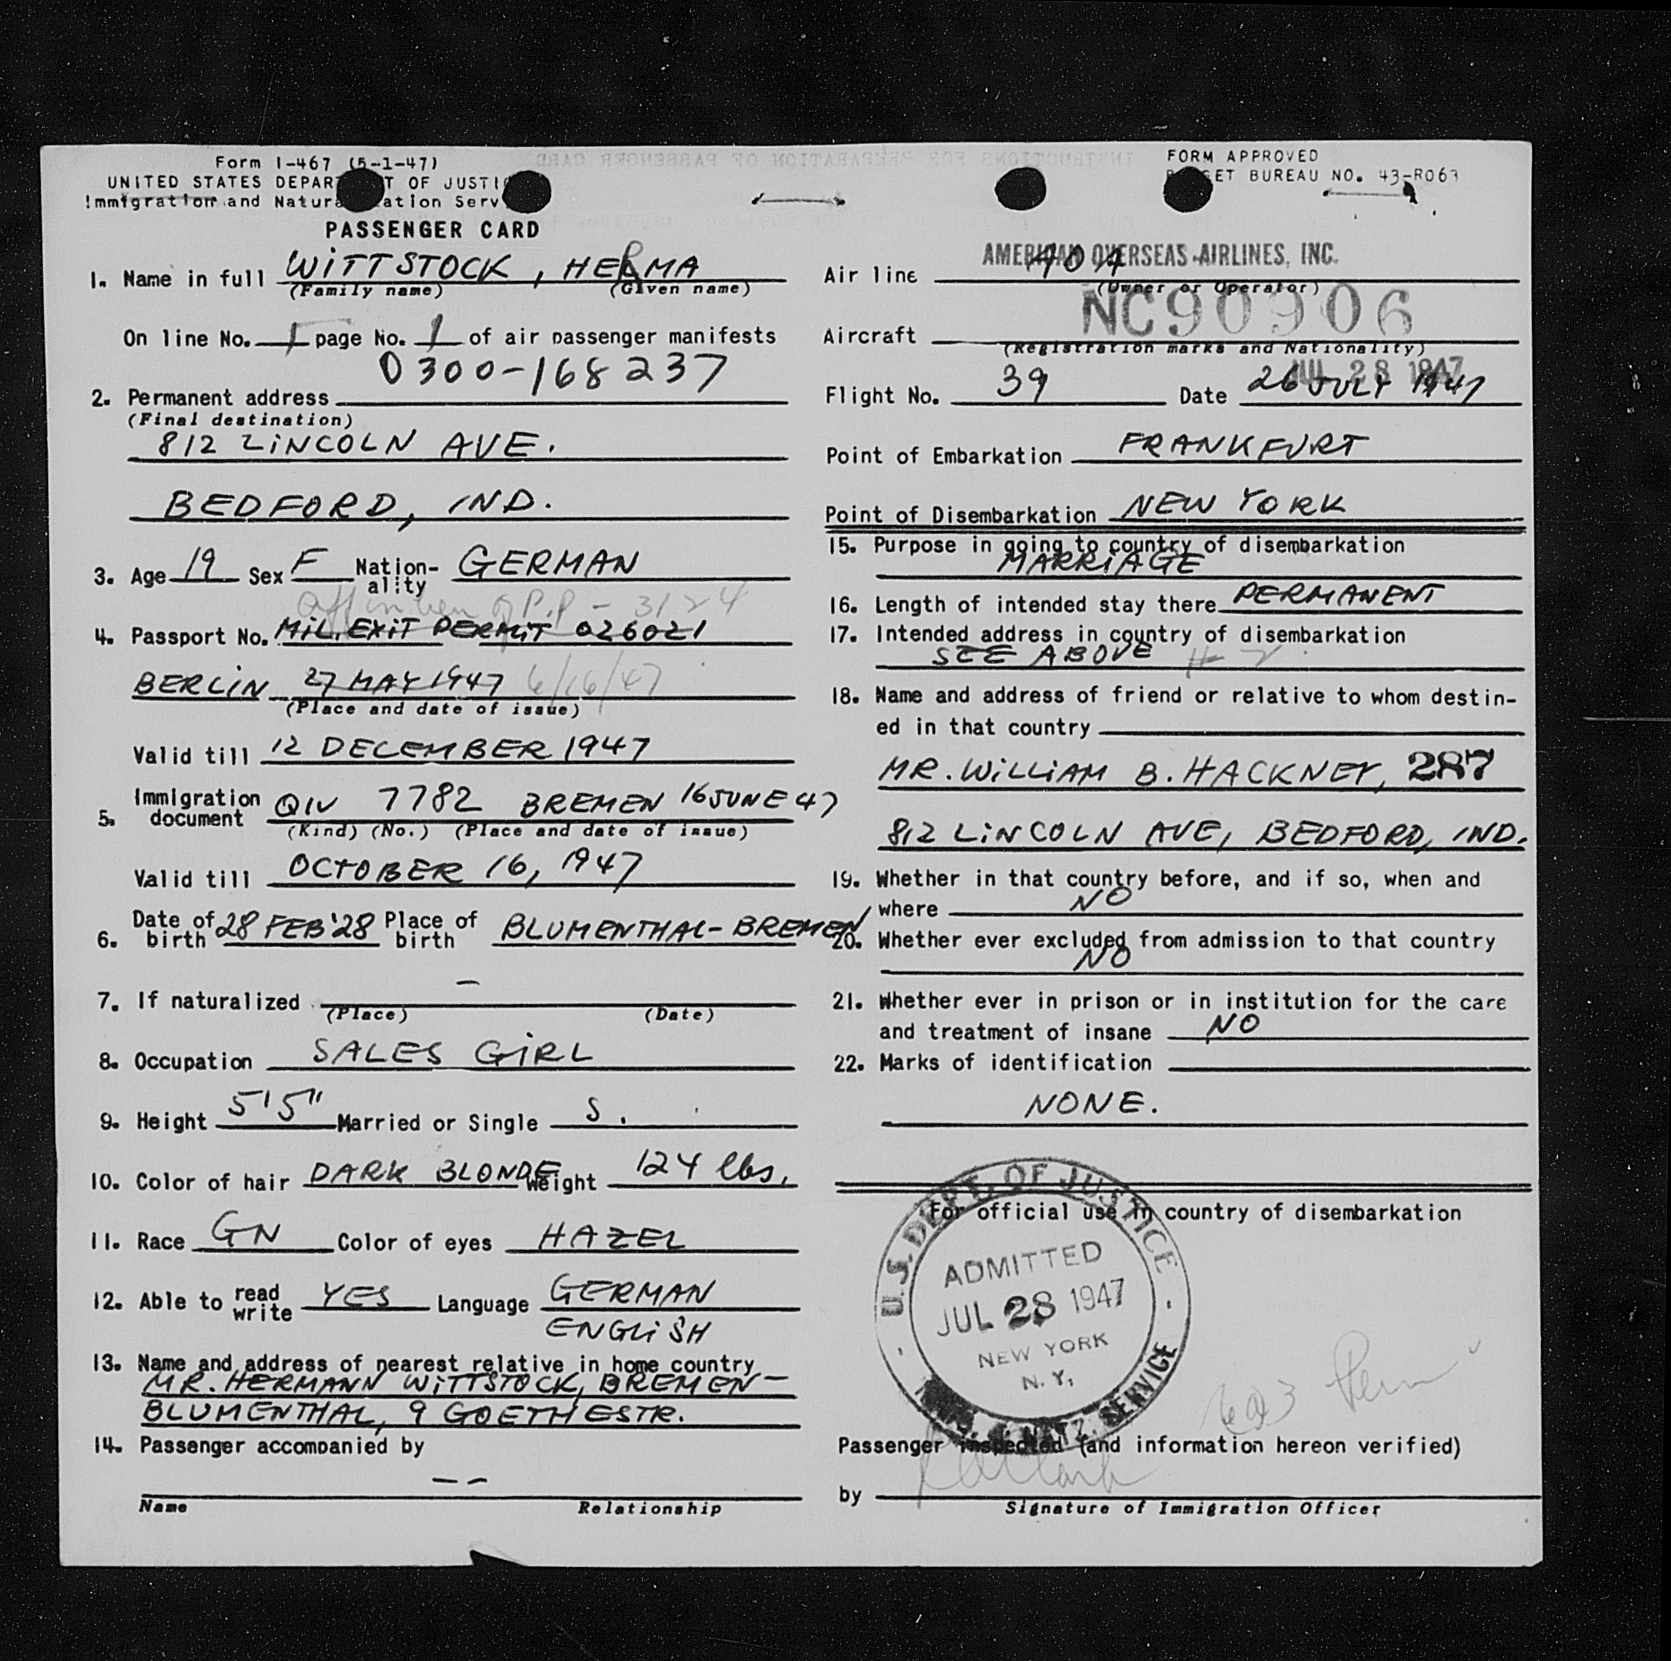 Form I-467 (5-1-47)
UNITED STATES DEPAR T OF JUSTIC
Immigration and Natura ation Serv
PASSENGER CARD
1. Name in full WITTSTOCK, HERMA
(Family name) (Given name)
On line No. 1 page No. 1 of air passenger manifests
0300-168237
2. Permanent address
(Final destination)
812 LINCOLN AVE.
BEDFORD, IND.
3. Age 19 Sex F Nation-ality GERMAN
P.P - 3124
4. Passport No. MIL. EXIT PERMIT 026021
BERLIN 27 MAY 1947 6/16/47
(Place and date of issue)
Valid till 12 DECEMBER 1947
5. Immigration document QIV 7782 BREMEN 16 JUNE 47
(Kind) (No.) (Place and date of issue)
Valid till OCTOBER 16, 1947
6. Date of birth 28 FEB '28 Place of birth BLUMENTHAL-BREMEN
7. If naturalized –
(Place) (Date)
8. Occupation SALES GIRL
9. Height 5'5" Married or Single S.
10. Color of hair DARK BLONDE Weight 124 lbs.
11. Race GN Color of eyes HAZEL
12. Able to read write YES Language GERMAN
ENGLISH
13. Name and address of nearest relative in home country
MR. HERMANN WITTSTOCK, BREMEN-
BLUMENTHAL, 9 GOETHESTR.
14. Passenger accompanied by
– –
Name Relationship
FORM APPROVED
B GET BUREAU NO. 43-R063
AMERICAN OVERSEAS AIRLINES, INC.
Air line
(Owner or Operator)
Aircraft NC90906
(Registration marks and Nationality)
JUL 28 1947
Flight No. 39 Date 26 JULY 1947
Point of Embarkation FRANKFURT
Point of Disembarkation NEW YORK
15. Purpose in going to country of disembarkation
MARRIAGE
16. Length of intended stay there PERMANENT
17. Intended address in country of disembarkation
SEE ABOVE
18. Name and address of friend or relative to whom destin-
ed in that country
MR. WILLIAM B. HACKNEY, 287
812 LINCOLN AVE, BEDFORD, IND.
19. Whether in that country before, and if so, when and
where NO
20. Whether ever excluded from admission to that country
NO
21. Whether ever in prison or in institution for the care
and treatment of insane NO
22. Marks of identification
NONE.
For official use in country of disembarkation
U.S. DEPT. OF JUSTICE
ADMITTED
JUL 28 1947
NEW YORK
N. Y.
SERVICE
Passenger inspected (and information hereon verified)
by
Signature of Immigration Officer